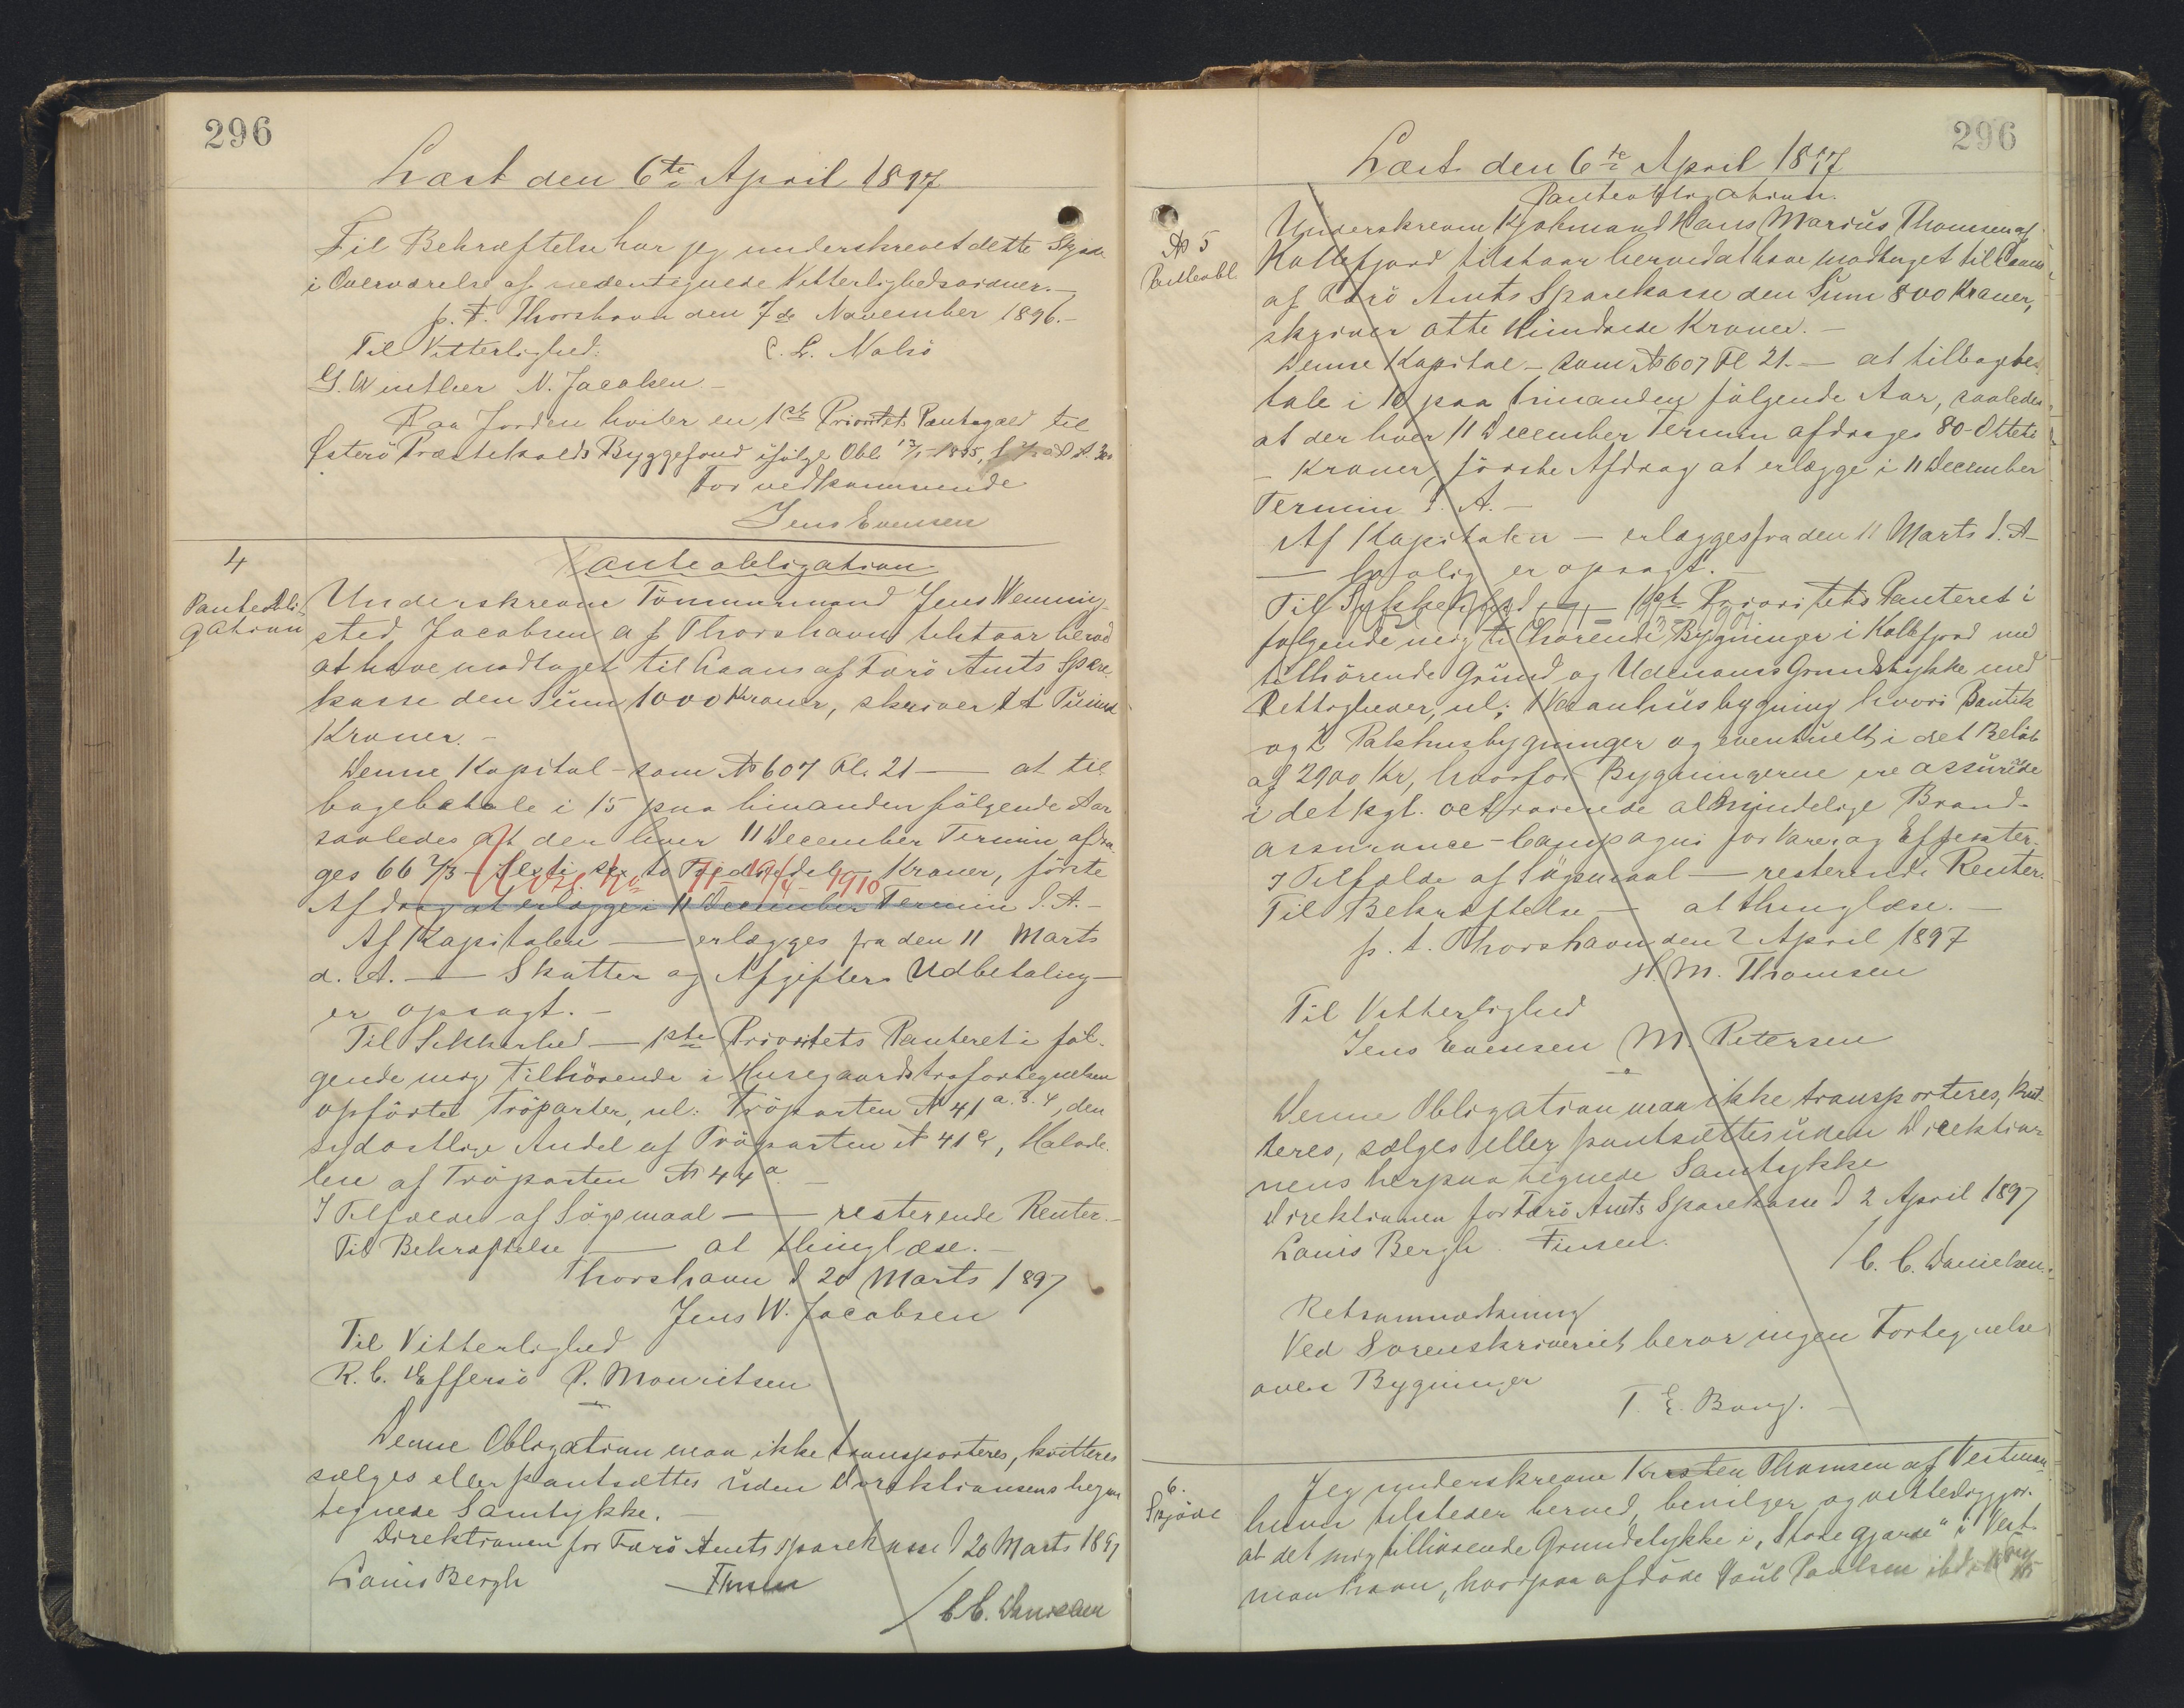 296
Læst den 6te April 1897
Til Bekræftelse har jeg underskrevet dette Skjøde
i Overværelse af nedentegnede Vitterlighedsvidner. –
p. T. Thorshavn den 7de November 1896. –
Til Vitterlighed: C. L. Nolsö
G. Winther N. Jacobsen –
Paa Jorden hviler en 1ste Prioritets Pantegæld til
Østerö Præstekalds Byggefond ifölge Obl.
For vedkommende
Jens Evensen
4
Panteobli
gation
Panteobligation
Underskrevne Tömmermand Jens Wenning
sted Jacobsen af Thorshavn tilstaar herved
at have modtaget til Laans af Færö Amts Spare
kasse den Sum 1000 Kroner, skriver Et Tusind
Kroner. –
Denne Kapital – som № 607 Fl. 21 — at til
bagebetale i 15 paa hinanden fölgende Aar
saaledes at der hver 11 December Termin afdra
ges 66 2/3 – Sexti sex to Trediedel – Kroner, förste
Afdrag at erlægge i 11 December Termin d. A. –
Af Kapitalen — erlægges fra den 11 Marts
d. A. — Skatter og Afgifters Udbetaling –
er opsagt. –
Til Sikkerhed — 1ste Prioritets Panteret i föl-
gende mig tilhörende i Husegaardstrøfortegnelsen
opförte Tröparter, nl: Tröparten № 41 a. 3. 4, den
sydostlige Andel af Tröparten № 41 e, Halvde
len af Tröparten № 44 a. –
I Tilfælde af Sögsmaal — resterende Renter. –
Til Bekræftelse — at thinglæse. –
Thorshavn d 20 Marts 1897
Jens W. Jacobsen
Til Vitterlighed
R. C. Effersö P. Mouritsen
Denne Obligation maa ikke transporteres, kvitteres
sælges eller pantsættes uden Direktionens herpaa
tegnede Samtykke. –
Direktionen for Færö Amts Sparekasse d 20 Marts 1897
Louis Bergh Finsen
/ C. C. Danielsen
296
Læst den 6te April 1897
№ 5
Panteobl.
Panteobligation.
Underskrevne Kjøbmand Hans Marius Thomsen af
Kollefjord tilstaar herved at have modtaget til Laans
af Færö Amts Sparekasse den Sum 800 Kroner,
skriver otte Hundrede Kroner. –
Denne Kapital – som № 607 Fl 21. — at tilbagebe-
tale i 10 paa hinanden fölgende Aar, saaledes
at der hver 11 December Termin afdrages 80 – Otteti
– Kroner, förste Afdrag at erlægge i 11 December
Termin d. A. –
Af Kapitalen — erlægges fra den 11 Marts d. A –
— lovlig er opsagt. –
Til Sikkerhed — 1ste Prioritets Panteret i
følgende mig tilhörende Bygninger i Kollefjord med
tilhörende Grund og Udenoms Grundstykke med
Rettigheder, nl: 1 Vaanhusbygning hvori Boutik
og 2 Pakhusbygninger og eventuelt i det Belöb
af 2900 Kr, hvorfor Bygningerne ere assurede
i det kgl. octroierede almindelige Brand-
assurance-Compagni for Varer og Effecter.
I Tilfælde af Sögsmaal — resterende Renter.
Til Bekræftelse — at thinglæse. –
p. t. Thorshavn den 2 April 1897
H. M. Thomsen
Til Vitterlighed
Jens Evensen M. Petersen
Denne Obligation maa ikke transporteres, kvit-
teres, sælges eller pantsættes uden Direktio-
nens herpaa tegnede Samtykke
Direktionen for Færö Amts Sparekasse d 2 April 1897
Louis Bergh Finsen.
/ C. C. Danielsen.
Retsanmærkning
Ved Sorenskriveriet beror ingen Fortegnelse
over Bygninger
T. E. Bang. –
6.
Skjöde
Jeg underskrevne Kresten Thomsen af Vestman-
havn tilsteder herved, bevilger og vitterliggjör
at det mig tilhörende Grundstykke i "Stovegjærde" i Vest-
manhavn, hvorpaa afdöde Poul Poulsen ibd.